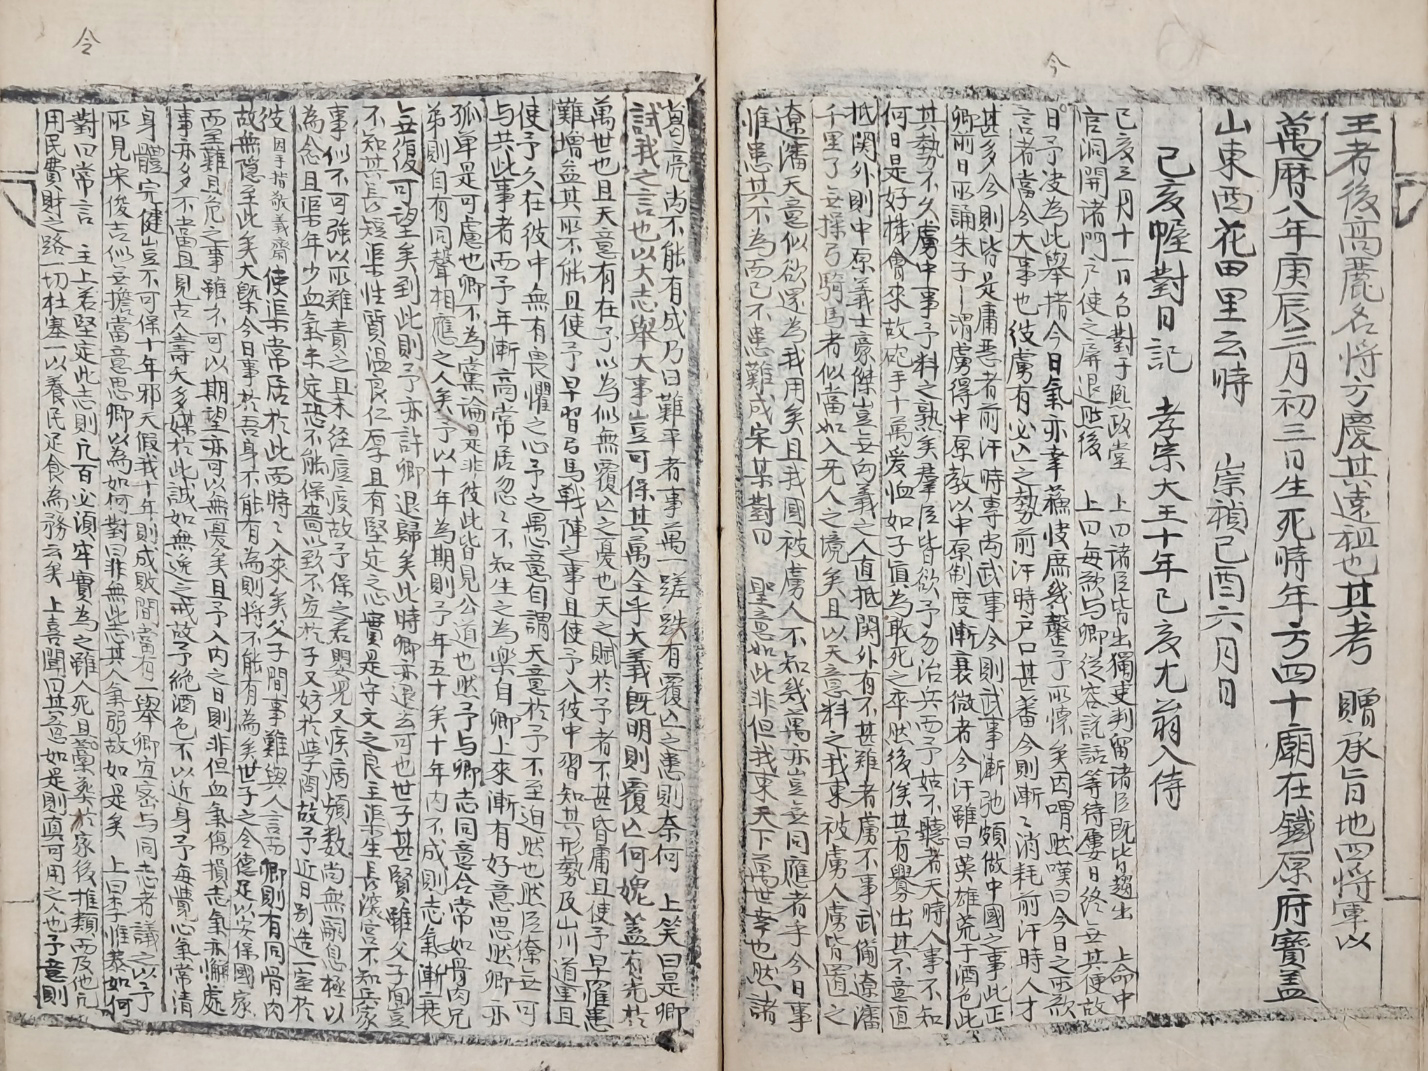 王者後高麗名將方慶其遠祖也其考　贈承旨地四將軍以
萬曆八年庚辰三月初三日生死時年方四十廟在鐵原府寶盖
山東西花田里云時　崇禎己酉六月日
己亥幄對日記　孝宗大王十年己亥尤翁入侍
己亥三月十一日召對于熙政堂　上曰諸臣皆出獨吏判留諸臣旣皆趨出　上命中
官洞開諸門乃使之屏退然後　上曰每欲与卿從容說話等待屢日終無其便故
日予决為此擧措今日氣亦幸蘓快庶幾罄予所懷矣因喟然嘆曰今日之所欲
言者當今大事也彼虜有必亡之勢前汗時戶口甚蕃今則漸漸消耗前汗時人才
甚多今則皆是庸惡者前汗時專尚武事今則武事漸弛頗做中國之事此正
卿前日所誦朱子謂虜得中原教以中原制度漸衰微者今汗雖曰英雄荒于酒色此
其勢不久虜中事予料之熟矣群臣皆欲予勿治兵而予姑不聽者天時人事不知
何日是好機會來故砲手十萬爱恤如子皆為敢死之卒然後俟其有釁出其不意直
抵関外則中原義士豪傑豈無向義之人直抵関外有不甚難者虜不事武備遼瀋
千里了無操弓騎馬者似當如入死人之境矣且以天意料之我東被虜人虜皆置之
遼瀋天意似欲還為我用矣且我國被虜人不知幾萬亦豈無同應者乎今日事
惟患其不為而已不患難成宋某對曰　聖意如此非但我東天下萬世幸也然諸
葛亮尚不能有成乃曰難平者事萬一蹉跌有覆亡之患則奈何　上笑曰是卿
試我之言也以大志擧大事豈可保其萬全乎大義旣明則覆亡何媿盖有光於
萬世也且天意有在予以為似無覆亡之憂也天之賦於予者不甚昏庸且使予早罹患
難增益其所不能且使予早習弓馬戰陣之事且使予入彼中習知其形勢及山川道里且
使予久在彼中無有畏懼之心予之愚意自謂天意於予不至迫然也然臣僚無可
与共此事者而予年漸高常居忽忽不知生之為樂自卿上來漸有好意思然卿亦
孤單是可慮也卿不為黨論是非彼此皆見公道也然予与卿志同意合常如骨肉兄
弟則自有同聲相應之人矣予以十年為期則予年五十矣十年內不成則志氣漸衰
無復可望矣到此則予亦許卿退歸矣此時卿亦退去可也世子甚賢雖父子間豈
不知其長短渠性質溫良仁厚且有堅定之心實是守文之良主渠生長深宮不知兵家
事似不可強以所難責之且未經痘疫故予保之若嬰兒又疾病頻數尚無嗣息極以
為念且渠年少血氣未定恐不能保嗇以致不宜於子又好於學問故予近日別造室於
彼因手指敬義齋使渠常居於此而時時入來矣父子間事難與人言而卿則有同骨肉
故無隱至此矣大槩今日事於吾身不能有為則將不能有為矣世子之令德足以安保國家
而至難且危之事雖不可以期望亦可以無憂矣且予入內之日則非但血氣傷損志氣亦懈處
事亦多不當且見古人壽夭多媒於此誠如無逸之戒故予絶酒色不以近身予每覺心氣常清
身體完健豈不可保十年邪天假我十年則成敗間當有一擧卿宜密与同志者議之以予
所見宋俊吉似無擔當意思卿以為如何對曰非無此志其人氣弱故如是矣　上曰李惟泰如何
對曰常言　主上若堅定此志則凡百必須牢實為之雖人死且藁葬於家後推類而及他凡
用民費財之路一切杜塞一以養民足食為務云矣　上喜聞曰其意如是則真可用之人也予意則
令
今